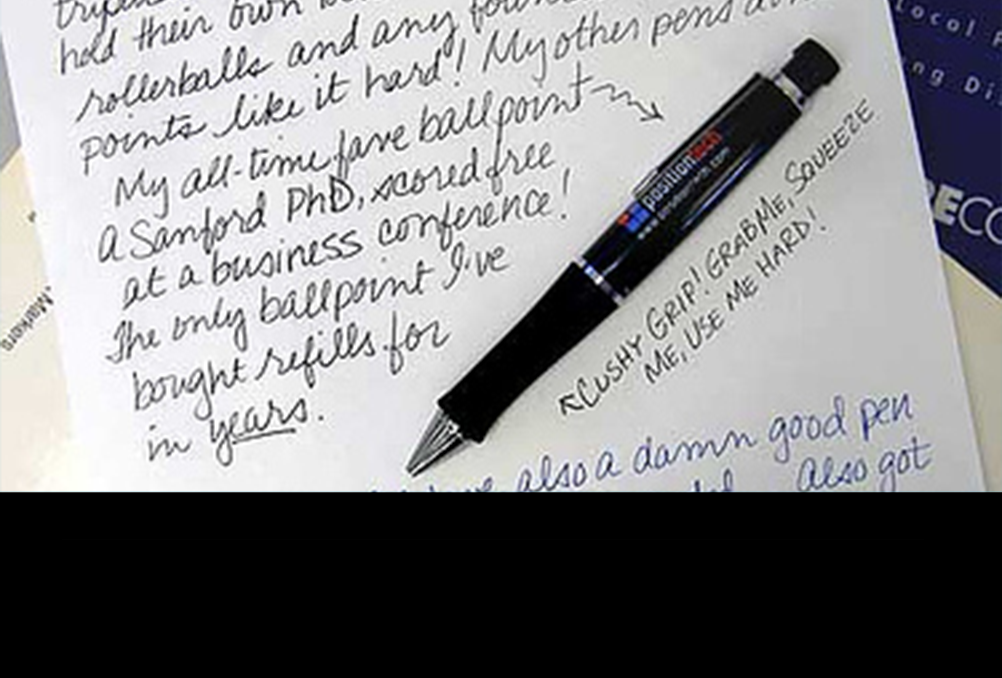 hold their own
rollerballs and any
points like it hard! My other pens
My all-time fave ballpoint
a Sanford PhD, scored free
at a business conference!
The only ballpoint I've
bought refills for
in years.
positiontech
CUSHY GRIP! GRAB ME, SQUEEZE
ME, USE ME HARD!
also a damn good pen
Also got
Markers
ocal
ng Di
RECO